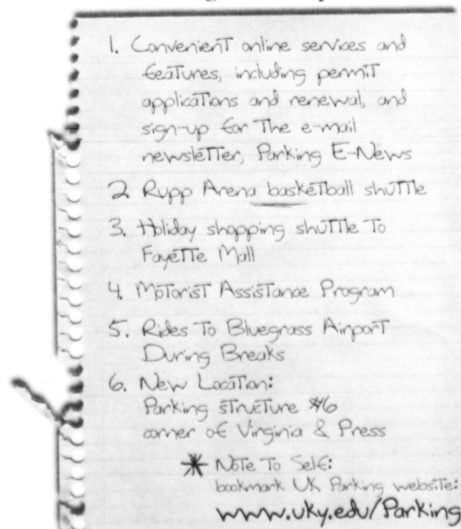 1. Convenient online services and
features, including permit
applications and renewal, and
sign-up for the e-mail
newsletter, Parking E-News
2 Rupp Arena basketball shuttle
3. Holiday shopping shuttle to
Fayette Mall
4. Motorist Assistance Program
5. Rides To Bluegrass Airport
During Breaks
6. New Location:
Parking structure #6
corner of Virginia & Press
* Note To Self:
bookmark UK Parking website:
www.uky.edu/Parking